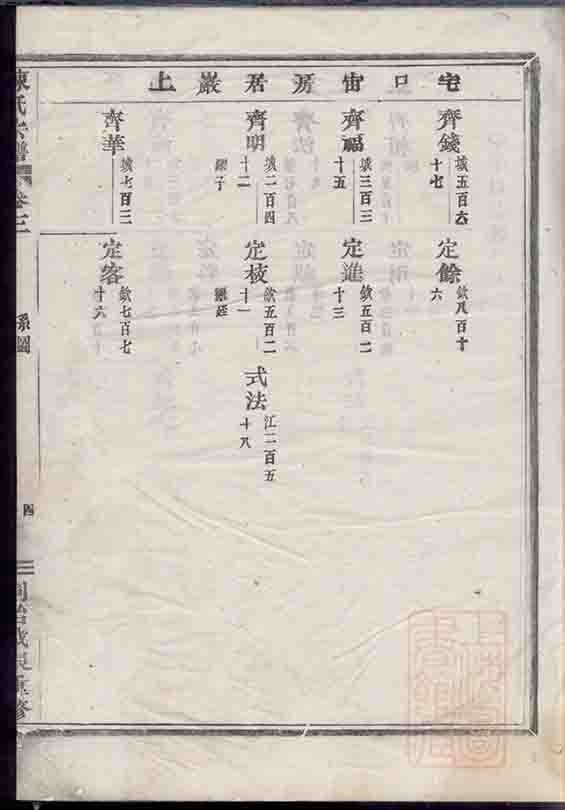 宅口宙房居巖上
齊錢
城五百六
十七
定餘
欽八百十
六
齊福
城三百三
十五
定進
欽五百二
十三
齊明
城二百四
十二
繼子
定枝
欽五百二
十一
式法
江二百五
十八
齊華
城七百三
定客
欽七百七
十六
陳氏宗譜
卷三
系圖
四
同治
重修